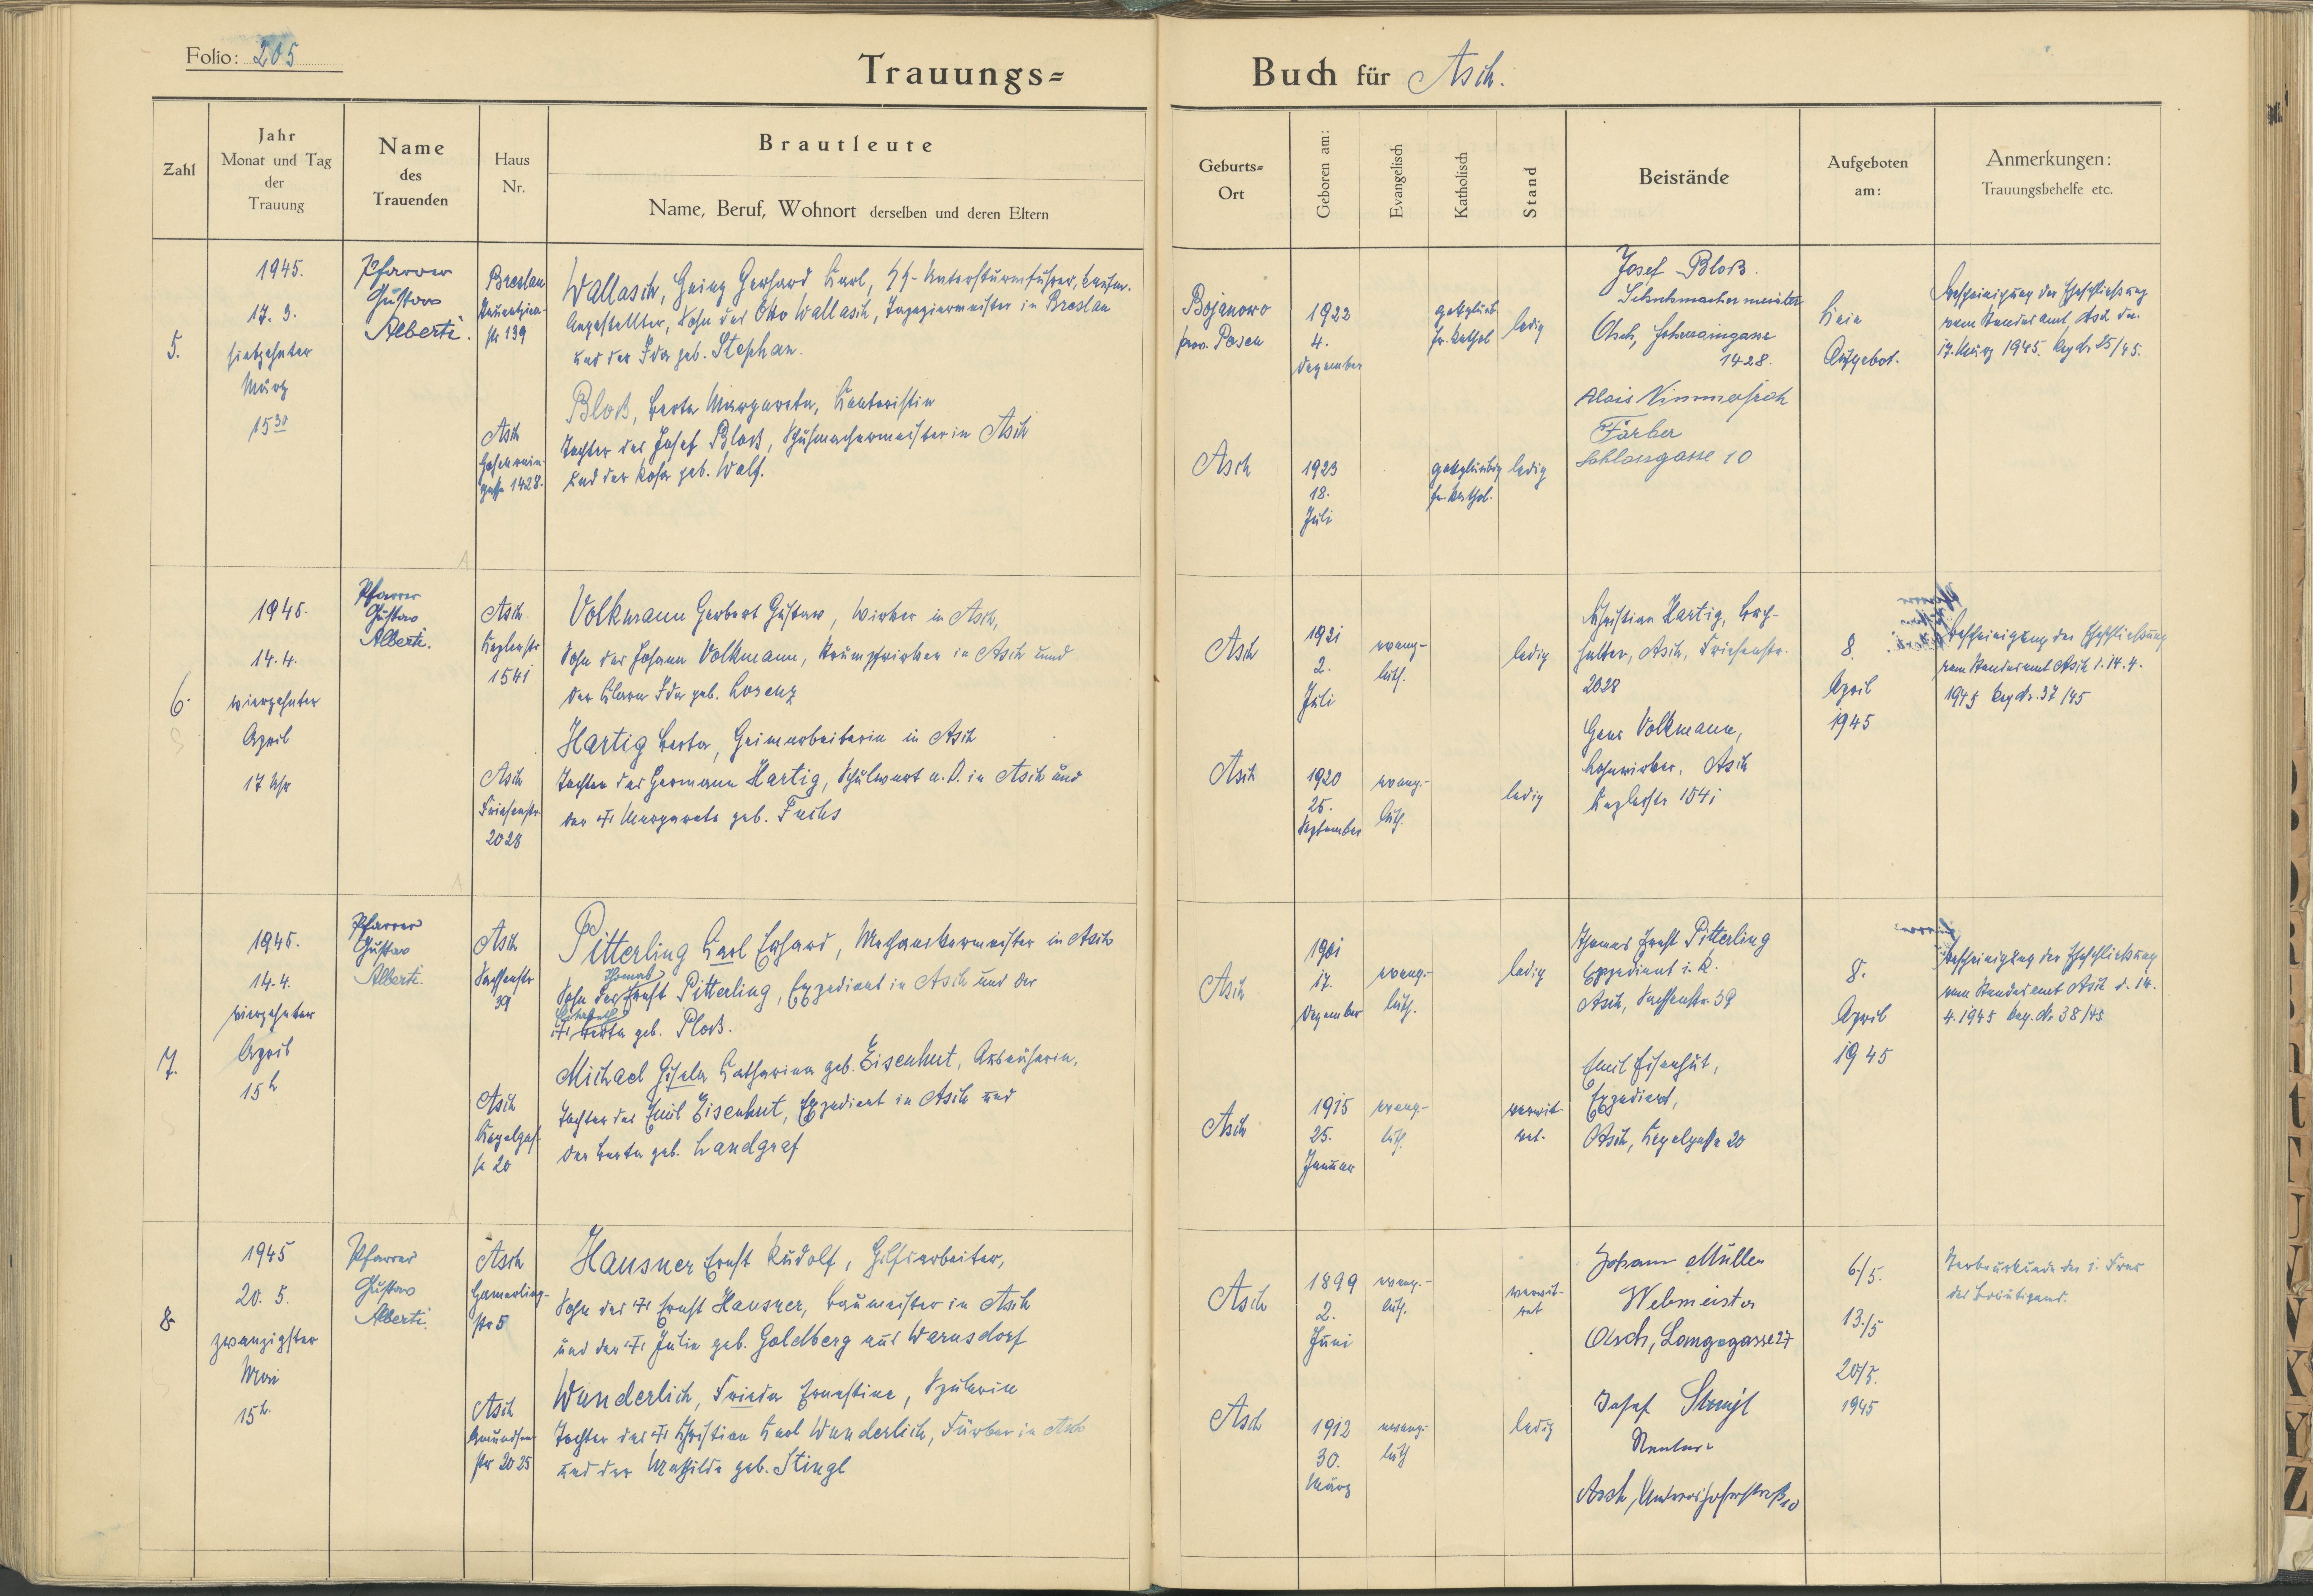 Folio: 205
Trauungs=
Buch für Asch.
Zahl
Jahr
Monat und Tag
der
Trauung
Name
des
Trauenden
Haus
Nr.
Brautleute
Name, Beruf, Wohnort derselben und deren Eltern
Geburts=
Ort
Geboren am:
Evangelisch
Katholisch
Stand
Beistände
Aufgeboten
am:
Anmerkungen:
Trauungsbehelfe etc.
5.
1945.
17. 3.
siebzehnter
März
15 30
Pfarrer
Gustav
Alberti.
Breslau
str 139
Wallasch, Heinz Gerhard Karl, SS-Untersturmführer, kaufm.
Angestellter, Sohn des Otto Wallasch, Tapeziermeister in Breslau
und der Ida geb. Stephan.
Asch
gasse 1428.
Bloß, Berta Margareta, Kontoristin
Tochter des Josef Bloß, Schuhmachermeister in Asch
und der Rosa geb. Wolf.
Bojanowo
prov. Posen
1922
4.
Dezember
gottgläub.
fr. kathol
ledig
Asch
1923
18.
Juli
gottgläubig
fr. kathol.
ledig
Josef Bloß.
Schuhmachermeister
Asch,
1428.
Alois
Färber
Schlossgasse 10
Kein
Aufgebot.
Bescheinigung der Eheschließung
vom Standesamt Asch den
17. März 1945. Reg Nr 25/45.
6.
1945.
14. 4.
vierzehnter
April
17 Uhr
Pfarrer
Gustav
Alberti.
Asch
Keplerstr
1541
Volkmann Herbert Gustav, Wirker in Asch,
Sohn des Johann Volkmann, Strumpfwirker in Asch und
der Klara Ida geb. Lorenz
Asch
Friesenstr.
2028
Hartig Berta, Heimarbeiterin in Asch
Tochter des Hermann Hartig, Schulwart a. D. in Asch und
der † Margareta geb. Fuchs
Asch
1921
2.
Juli
evang.-
luth.
ledig
Asch
1920
25.
September
evang.-
luth.
ledig
Christian Hartig, Buch-
halter, Asch, Friesenstr.
2028
Hans Volkmann,
Asch
Keplerstr 1541
8.
April
1945
Bescheinigung der Eheschließung
vom Standesamt Asch d. 14. 4.
1945 Reg Nr. 37/45
7.
1945.
14. 4.
vierzehnter
April
15 h
Pfarrer
Gustav
Alberti.
Asch
Sachsenstr
39
Pitterling Karl Erhard, Mechanikermeister in Asch
Thomas
Sohn des Ernst Pitterling, Expedient in Asch und der
† Berta geb. Ploß.
Asch
Kegelgas-
se 20
Michael Gisela Katharina geb. Eisenhut,
Tochter des Emil Eisenhut, Expedient in Asch und
der Berta geb. Landgraf
Asch
1901
17.
Dezember
evang.-
luth.
ledig
Asch
1915
25.
Januar
evang.-
luth.
verwit-
wet.
Thomas Ernst Pitterling
Expedient i. R.
Asch, Sachsenstr. 39
Emil Eisenhut,
Expedient,
Asch, Kegelgasse 20
8.
April
1945
Bescheinigung der Eheschließung
vom Standesamt Asch d. 14.
4. 1945 Reg. Nr 38/45
8.
1945
20. 5.
zwanzigster
Mai
15 h.
Pfarrer
Gustav
Alberti.
Asch
Hamerling-
str 5
Hausner Ernst Rudolf, Hilfsarbeiter,
Sohn des † Ernst Hausner, Baumeister in Asch
und der † Julie geb. Goldberg aus Warnsdorf
Asch
str 2025
Wunderlich, Frieda Ernestine, Spulerin
Tochter des † Christian Karl Wunderlich, Färber in Asch
und der Mathilde geb. Stingl
Asch
1899
2.
Juni
evang.-
luth.
verwit-
wet
Asch
1912
30.
März
evang.-
luth
ledig
Johann Müller
Webmeister
Asch, Langegasse 27
Josef Stingl
Rentner
Asch,
6./5.
13./5
20/5.
1945
Sterbeurkunde der 1. Frau
des Bräutigams.